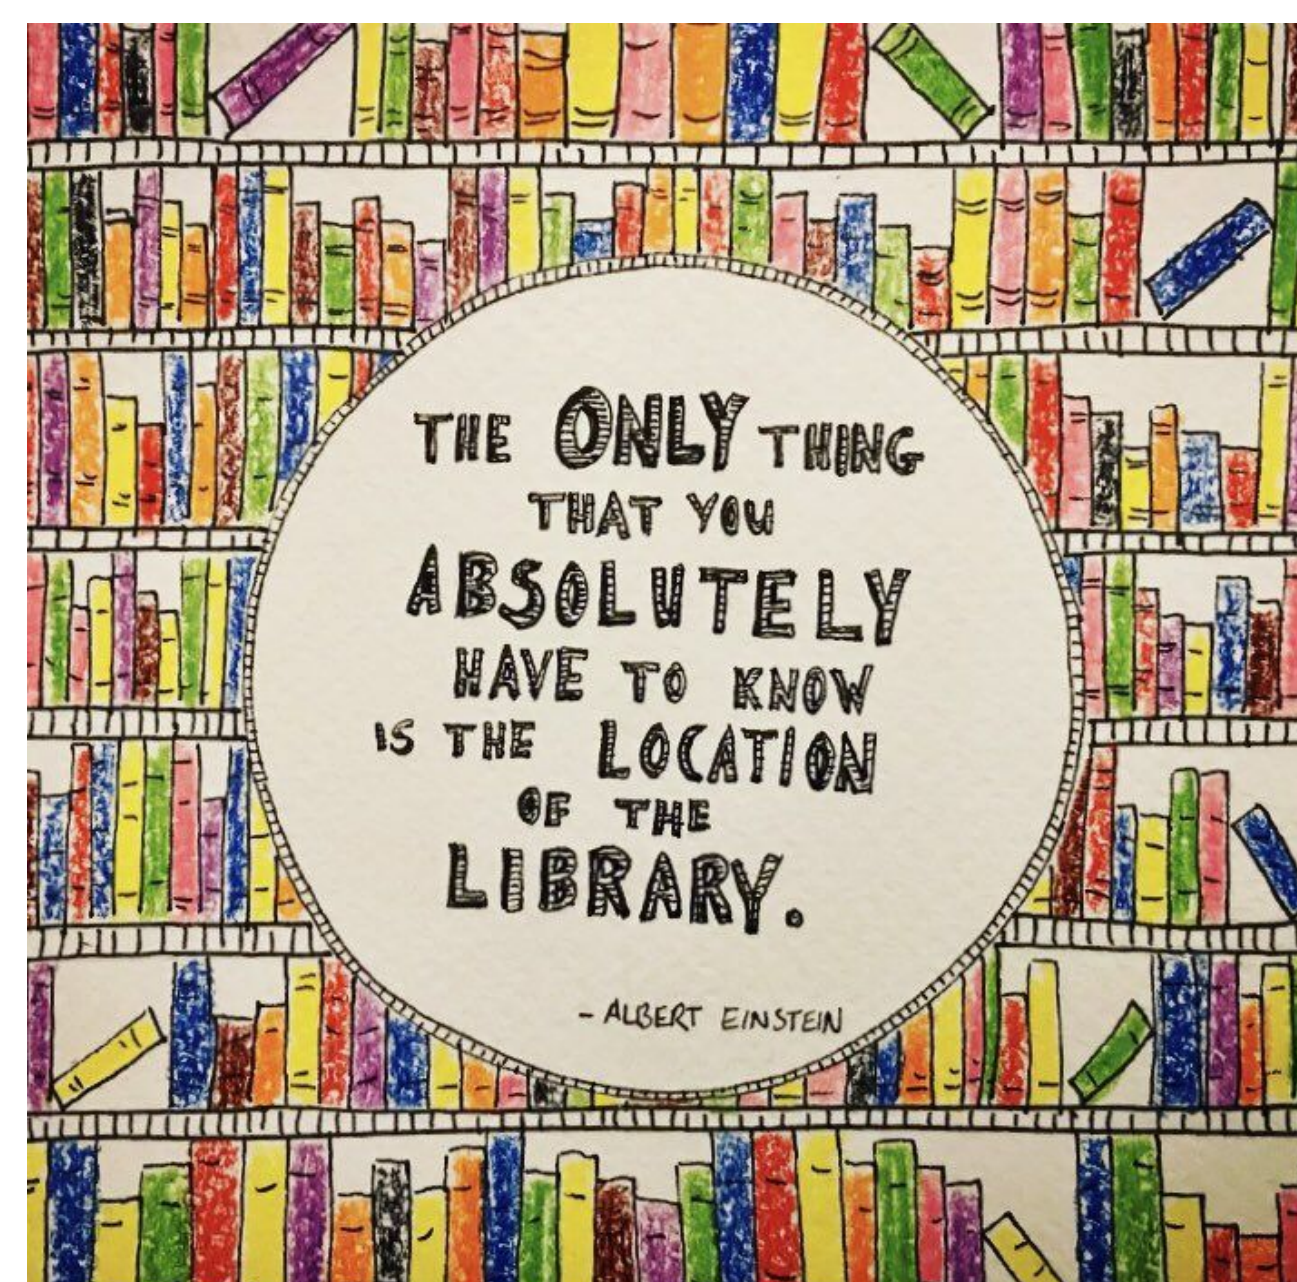 THE ONLY THING
THAT YOU
ABSOLUTELY
HAVE TO KNOW
IS THE LOCATION
OF THE
LIBRARY.
- ALBERT EINSTEIN